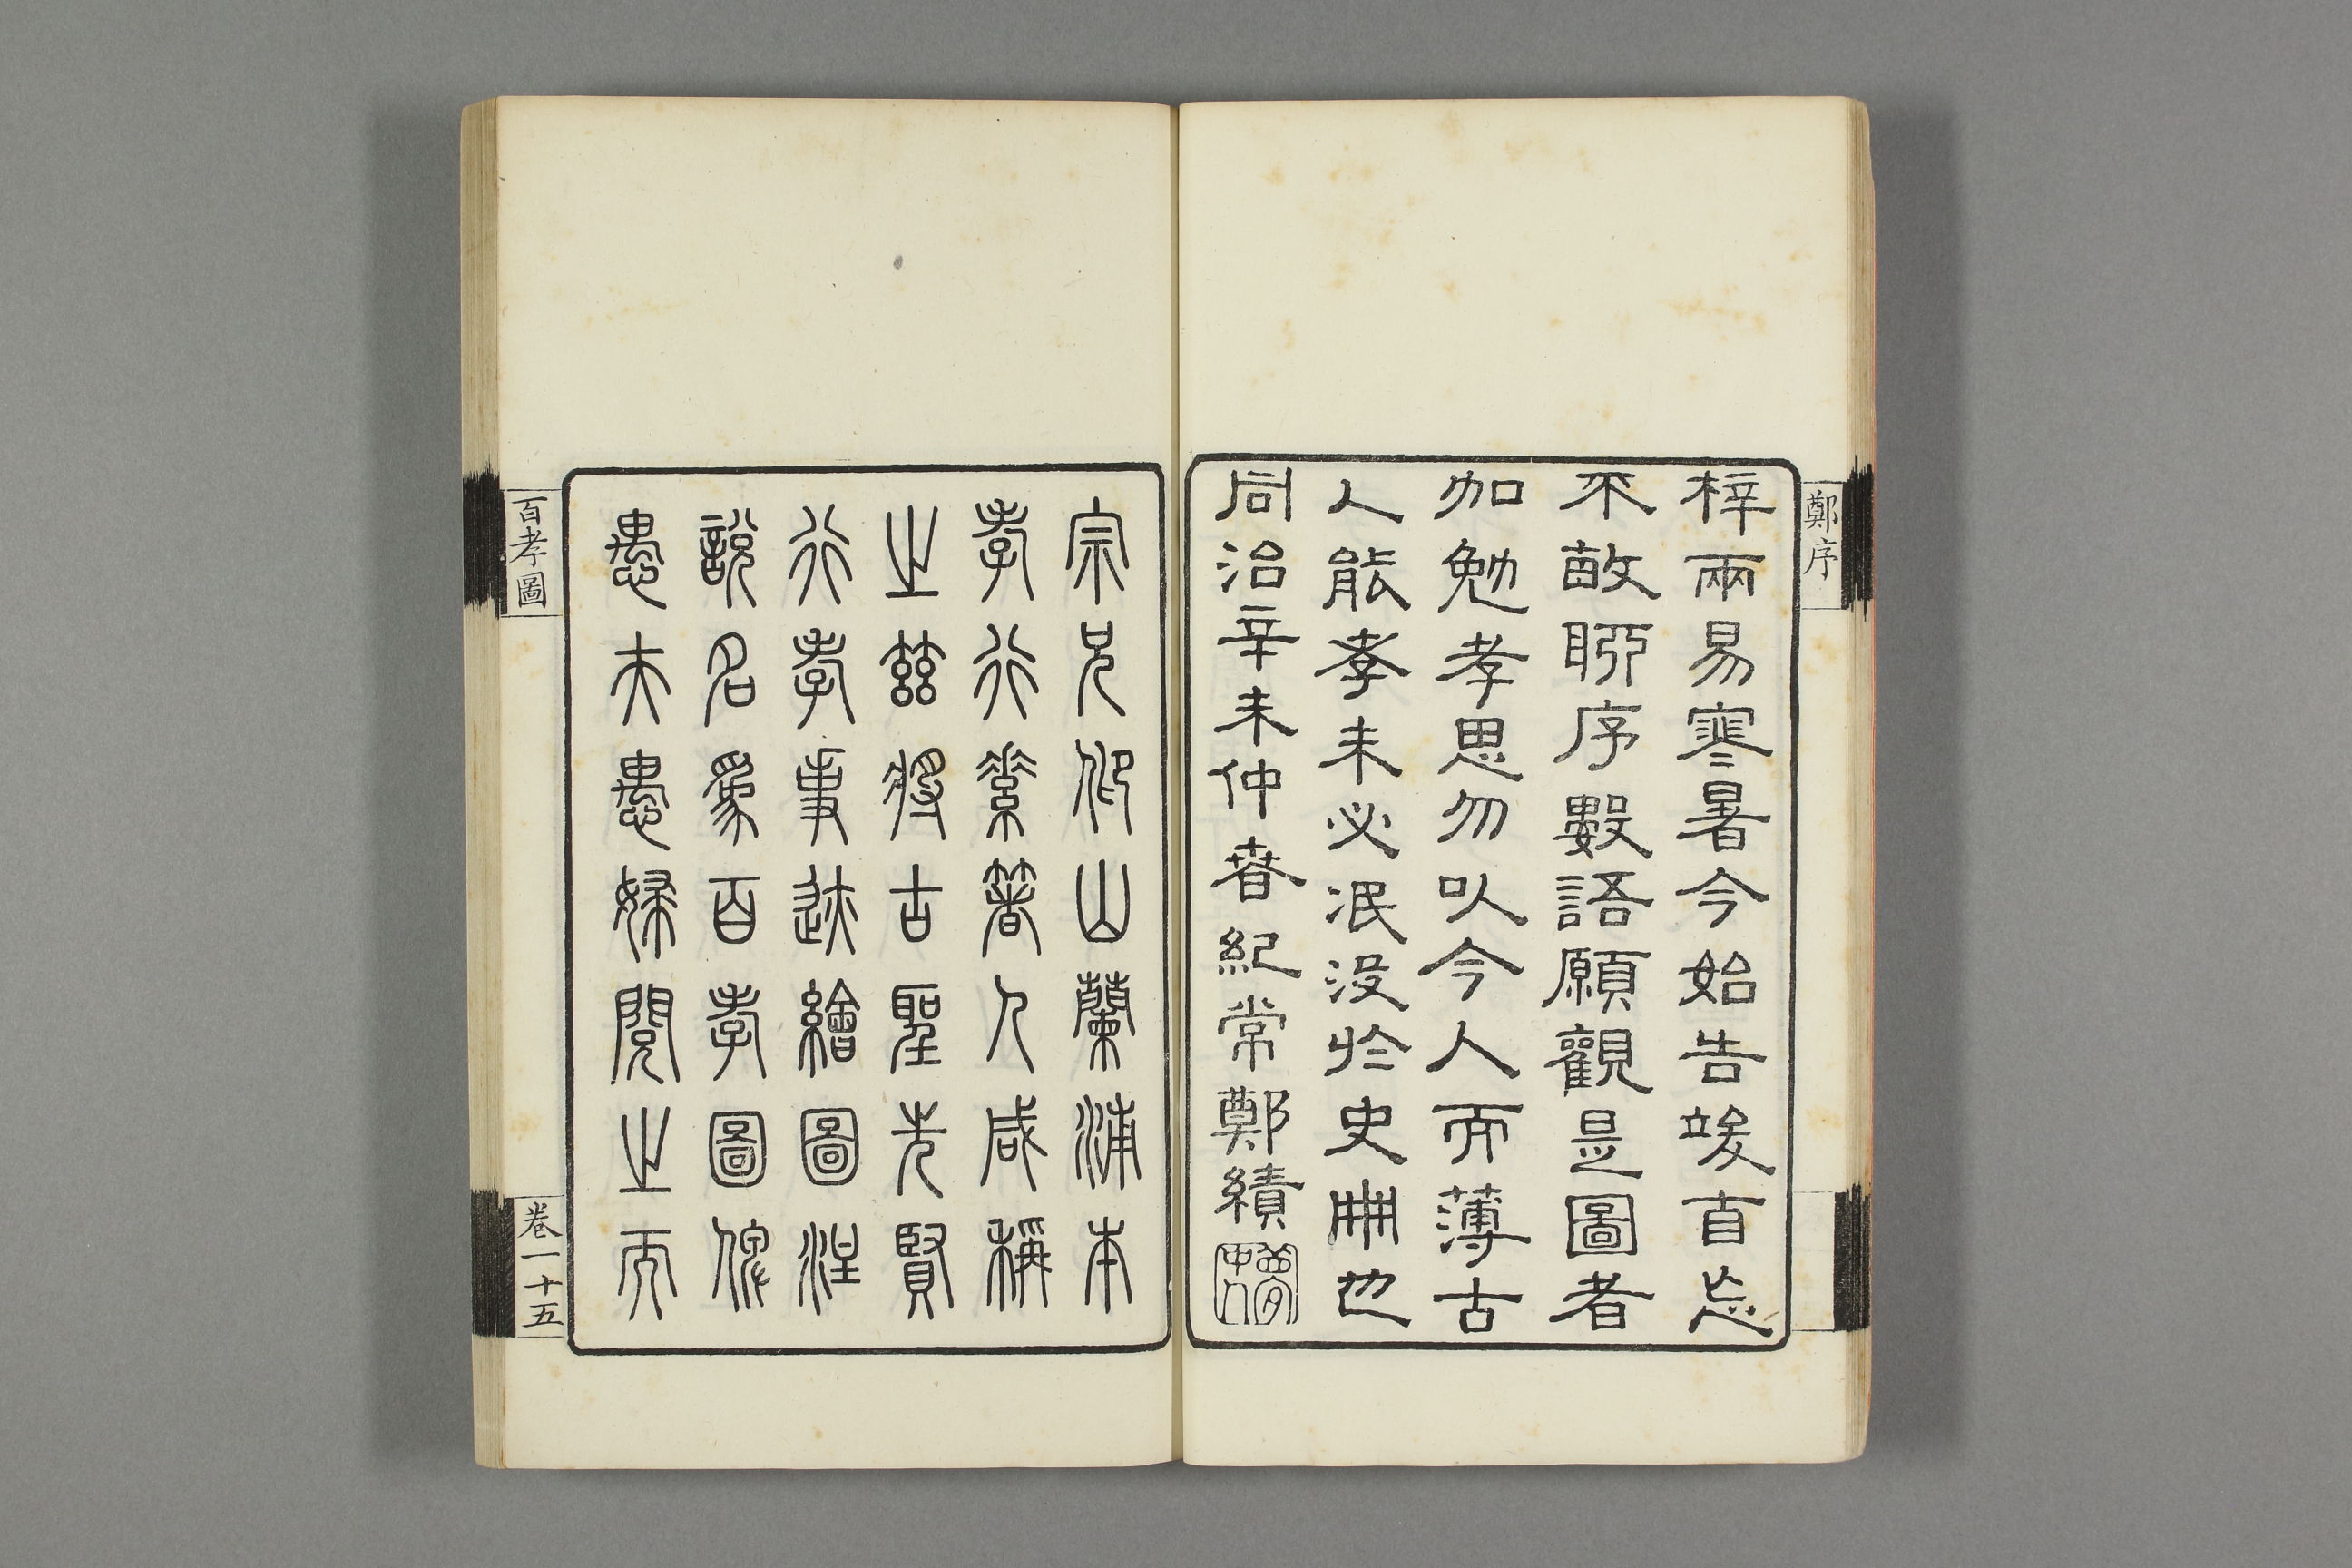 鄭序
梓兩易寒暑今始告竣自忘
不敏聊序數語願觀是圖者
加勉孝思勿以今人而薄古
人能孝未必泯沒於史冊也
同治辛未仲春紀常鄭績
夢中人
宗兄仰山蘭浦本
孝行素著人咸稱
之茲將古聖先賢
行孝事迹繪圖
說名為百孝圖俾
愚夫愚婦閱之而
百孝圖
卷一 十五